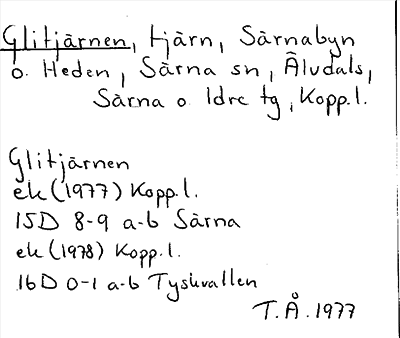 Glitjärnen, tjärn, Särnabyn
o. Heden, Särna sn, Älvdals,
Särna o. Idre tg, Kopp.l.
Glitjärnen
ek (1977) Kopp.l.
15D 8-9 a-b Särna
ek (1978) Kopp.l.
16D 0-1 a-b Tyskvallen
T.Å. 1977